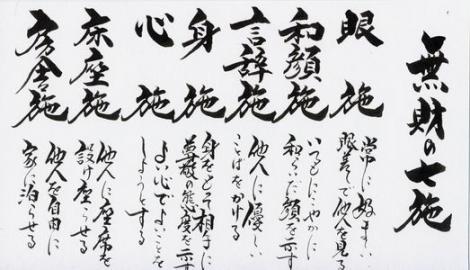 無財の七施
眼施
常に好ましい
眼差しで他人を見る
和顔施
いつもにこやかに
和らいだ顔を示す
言辞施
他人に優しい
ことばをかける
身施
身をもって相手に
尊敬の態度を示す
心施
よい心でよいことを
しようとする
床座施
他人に座席を
設け座らせる
房舎施
他人を自由に
家に泊らせる